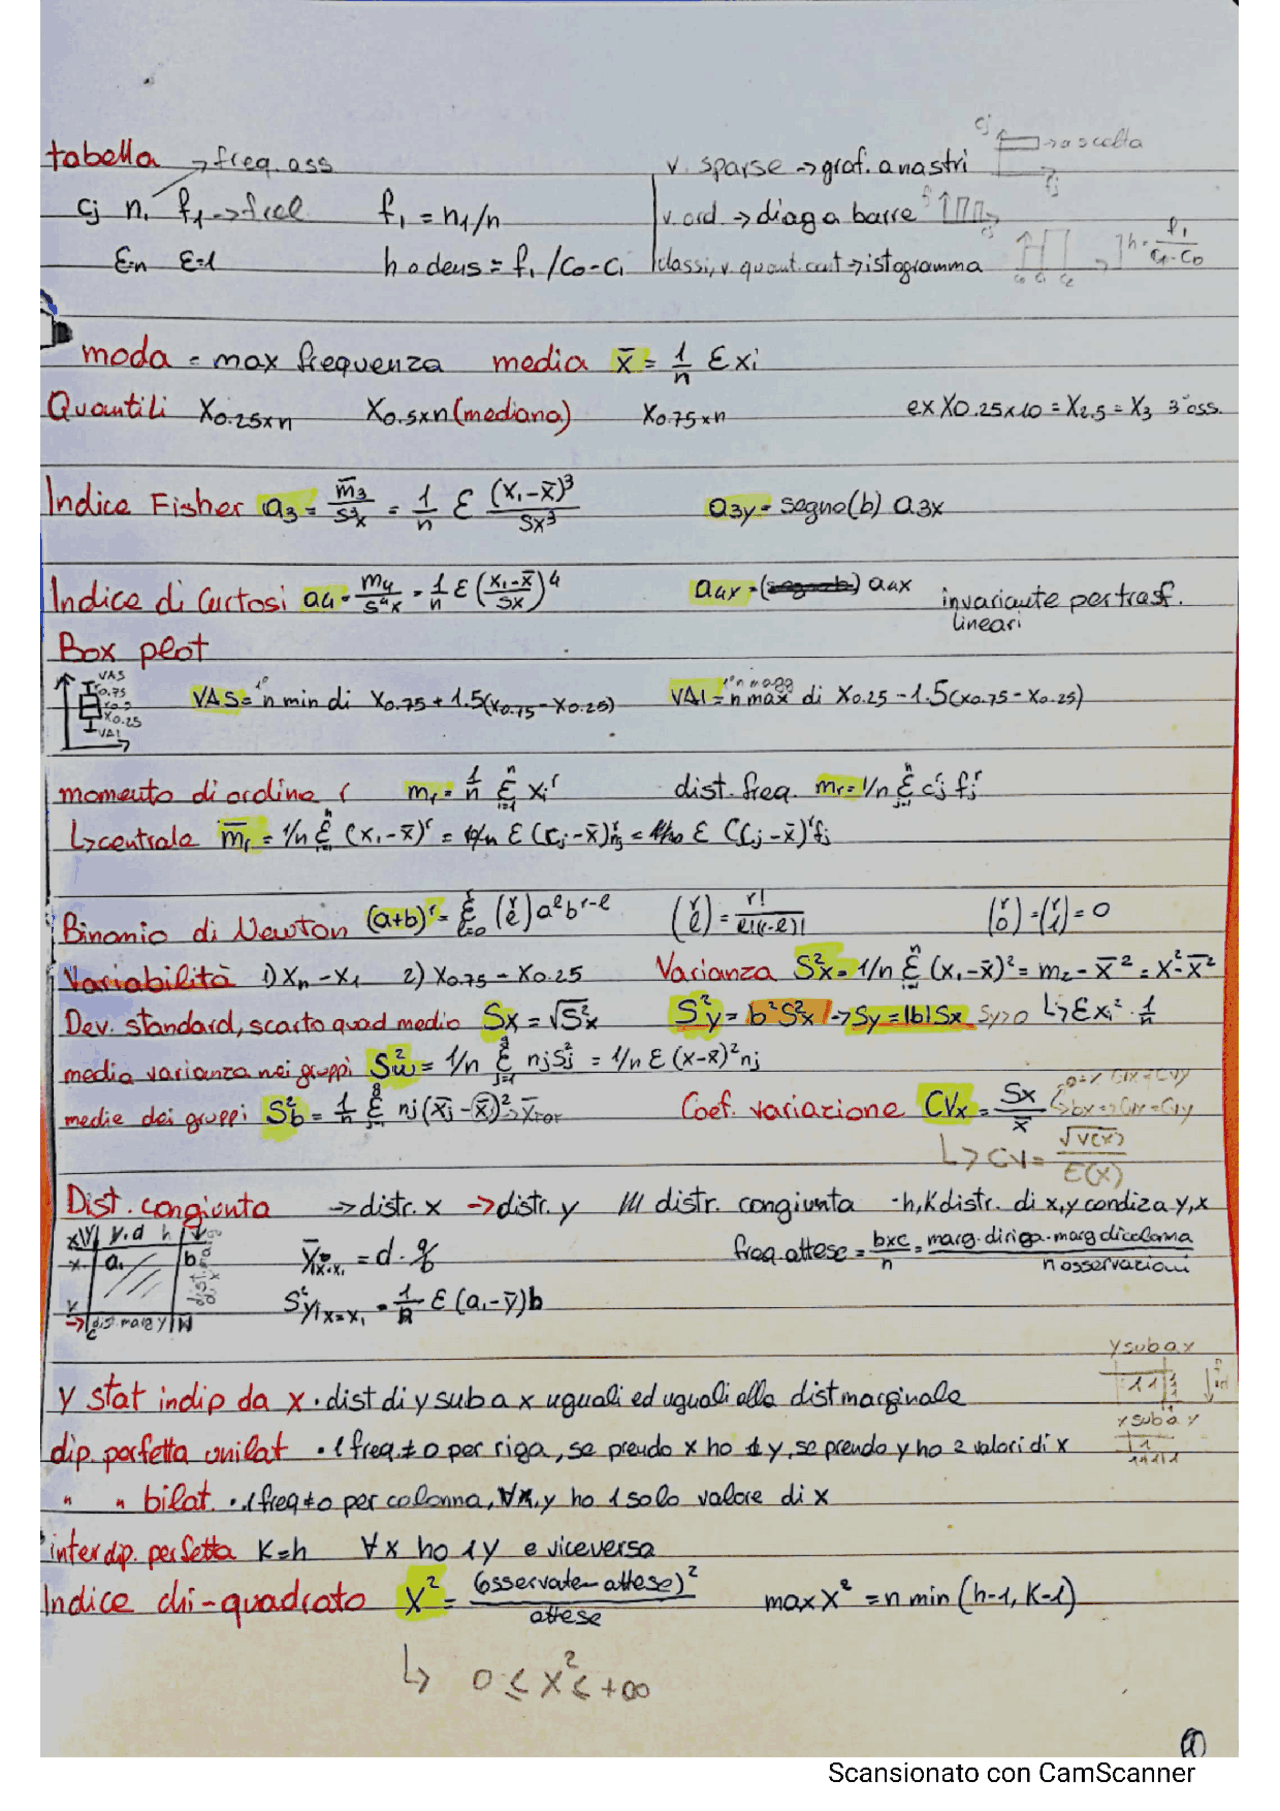 tabella → freq. ass v. sparse → graf. a nastri cj → ascelta fj
cj n1 f1 → frel f1 = n1/n v. ord → diag a barre
Σ=n Σ=1 h o dens = f1 / C0-C1 classi, v. quant. cont → istogramma C0 C1 C2 ] h = f1 / C1-C0
moda = max frequenza media x̄ = 1/n Σ xi
Quantili X0.25×n X0.5×n (mediana) X0.75×n ex X0.25×10 = X2.5 = X3 3° oss.
Indice Fisher a3 = m̄3/s³x = 1/n Σ (x1-x̄)³/Sx³ a3y = segno(b) a3x
Indice di Curtosi a4 = m4/s⁴x = 1/n Σ (x1-x̄/Sx)⁴ a4x = a4x invariante per trasf. lineari
Box plot
VAS X0.75 X0.5 X0.25 VAI VAS = 1° n min di X0.75 + 1.5(X0.75 - X0.25) VAI = n max di X0.25 - 1.5(X0.75 - X0.25)
momento di ordine r mr = 1/n Σ xiʳ dist. freq. mr = 1/n Σ cjʳ fjʳ
↳ centrale m̄r = 1/n Σ (x1-x̄)ʳ = 1/n Σ (cj-x̄)ʳ nj = Σ (cj-x̄)ʳ fj
Binomio di Newton (a+b)ʳ = Σ (r ℓ) aℓ bʳ⁻ℓ (r ℓ) = r!/ℓ!(r-ℓ)! (r 0) = (r 1) = 0
Variabilità 1) Xn - X1 2) X0.75 - X0.25 Varianza S²x = 1/n Σ (x1-x̄)² = m2 - x̄² = x²-x̄²
Dev. standard, scarto quad medio Sx = √S²x S²y = b²S²x → Sy = |b| Sx Sy>0 ↳ Σxi² · 1/n
media varianza nei gruppi S²w = 1/n Σ nj S²j = 1/n Σ (x-x̄)² nj
medie dei gruppi S²b = 1/n Σ nj (x̄j - x̄)² → x̄TOT Coef. variazione CVx = Sx/x̄
↳ CV = √V(X) / E(X)
Dist. congiunta → distr. x → distr. y /// distr. congiunta - h, K distr. di x, y condiz a y, x
x\y y.d h a1 b dist. marg di x dist. marg y N
ȳ|x=x1 = d · freq. attese = b×c/n = marg. di riga · marg di colonna / n osservazioni
S²y|x=x1 = 1/n Σ (a1-ȳ) b
y sub a x
y stat indip da x · dist di y sub a x uguali ed uguali alla dist marginale
x sub a y
dip. perfetta unilat · 1 freq ≠ 0 per riga, se prendo x ho 1 y, se prendo y ho 2 valori di x
" " bilat. · 1 freq ≠ 0 per colonna, ∀ x, y ho 1 solo valore di x
interdip. perfetta K=h ∀ x ho 1 y e viceversa
Indice chi-quadrato X² = (osservate - attese)² / attese max X² = n min (h-1, K-1)
↳ 0 ≤ X² ≤ +∞
1
Scansionato con CamScanner